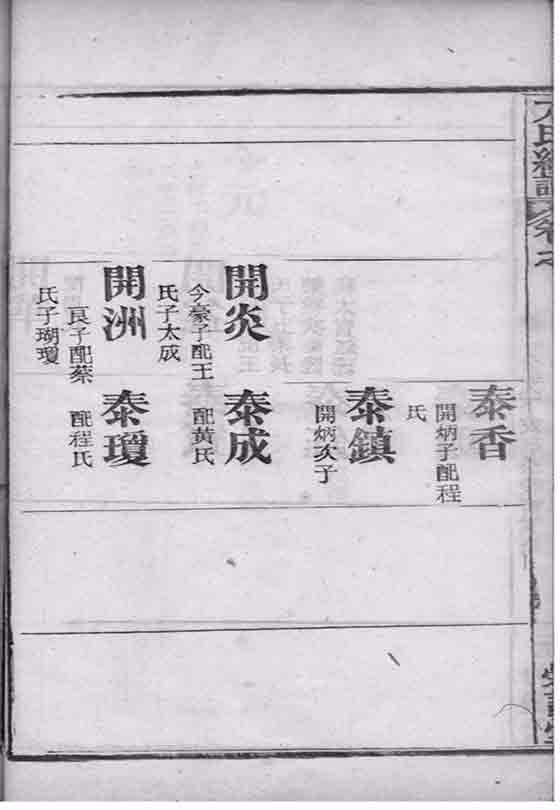 泰香
開炳子配程
氏
泰鎮
開炳次子
開炎
今豪子配王
氏子太成
泰成
配黃氏
開洲
良子配蔡
氏子瑚瓊
泰瓊
配程氏